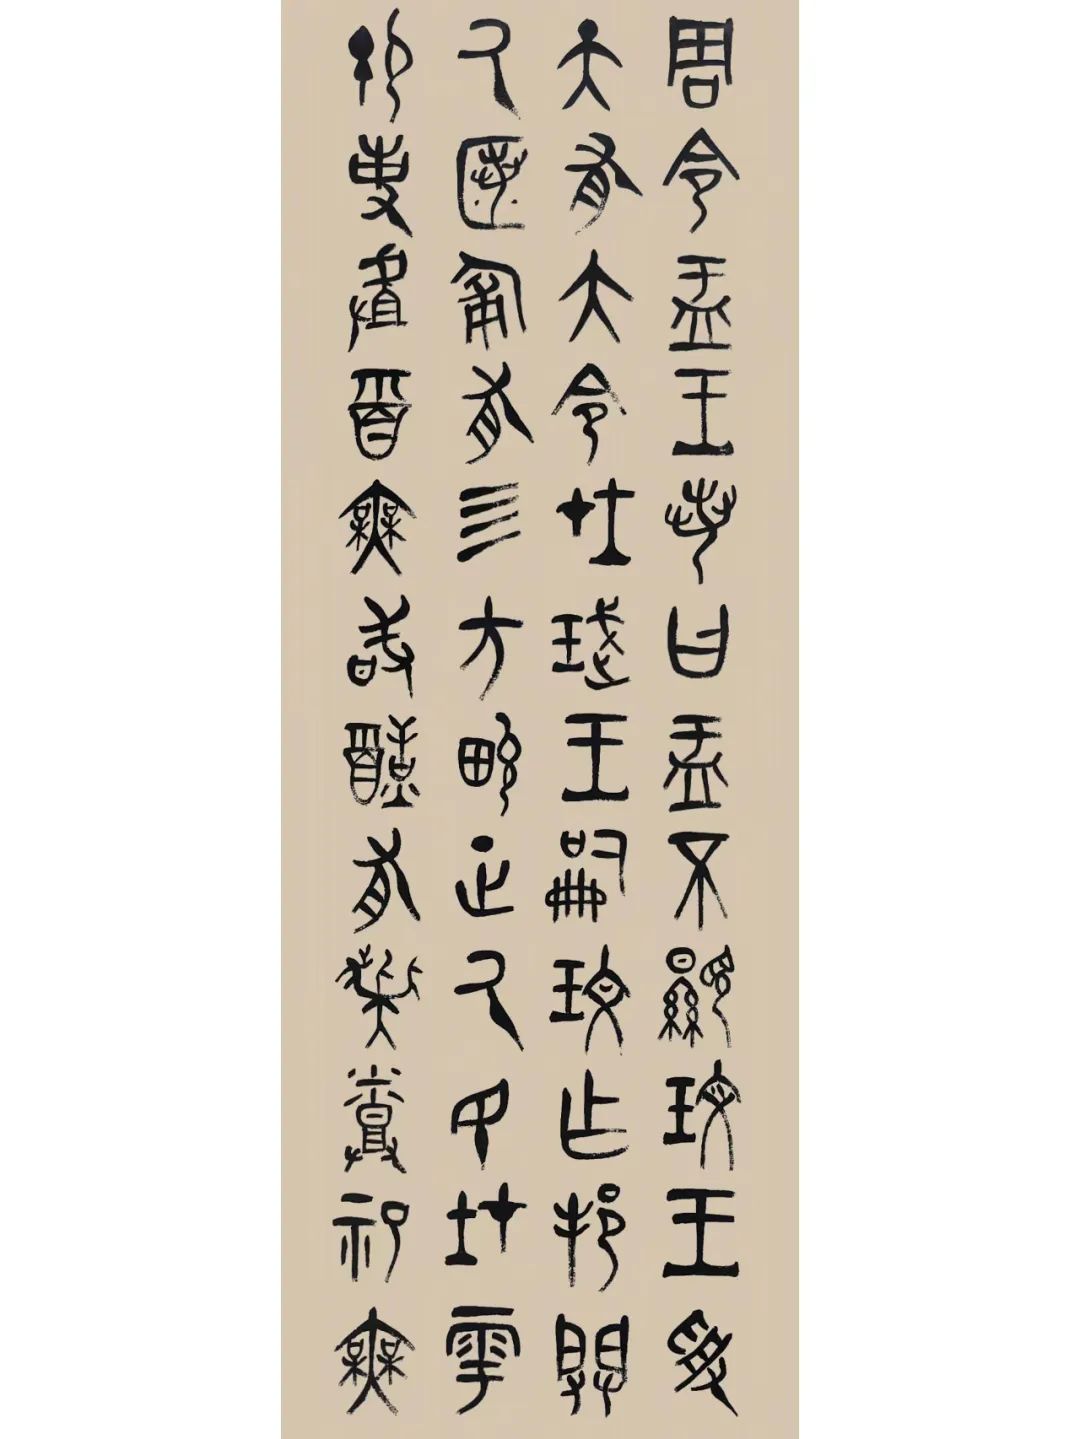 周令盂王若曰盂不顯玟王受
天有大令在珷王嗣玟乍邦闢
厥匿匍有四方畯正厥民在雩
御事䖒酉無敢酖有髭烝祀無